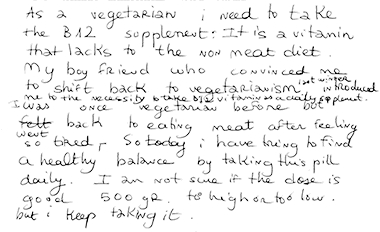 As a vegetarian i need to take
the B12 supplement: It is a vitamin
that lacks to the non meat diet.
My boy friend who convinced me
to shift back to vegetarianism, last winter, introduced
me to the necessity to take B12 vitamin as a daily suplement.
I was once vegetarian before but
felt back to eating meat after feeling
went
so tired, So today i have tring to find
a healthy balance by taking this pill
daily. I am not sure if the dose is
good 500 gr. to high or too low.
but i keep taking it.